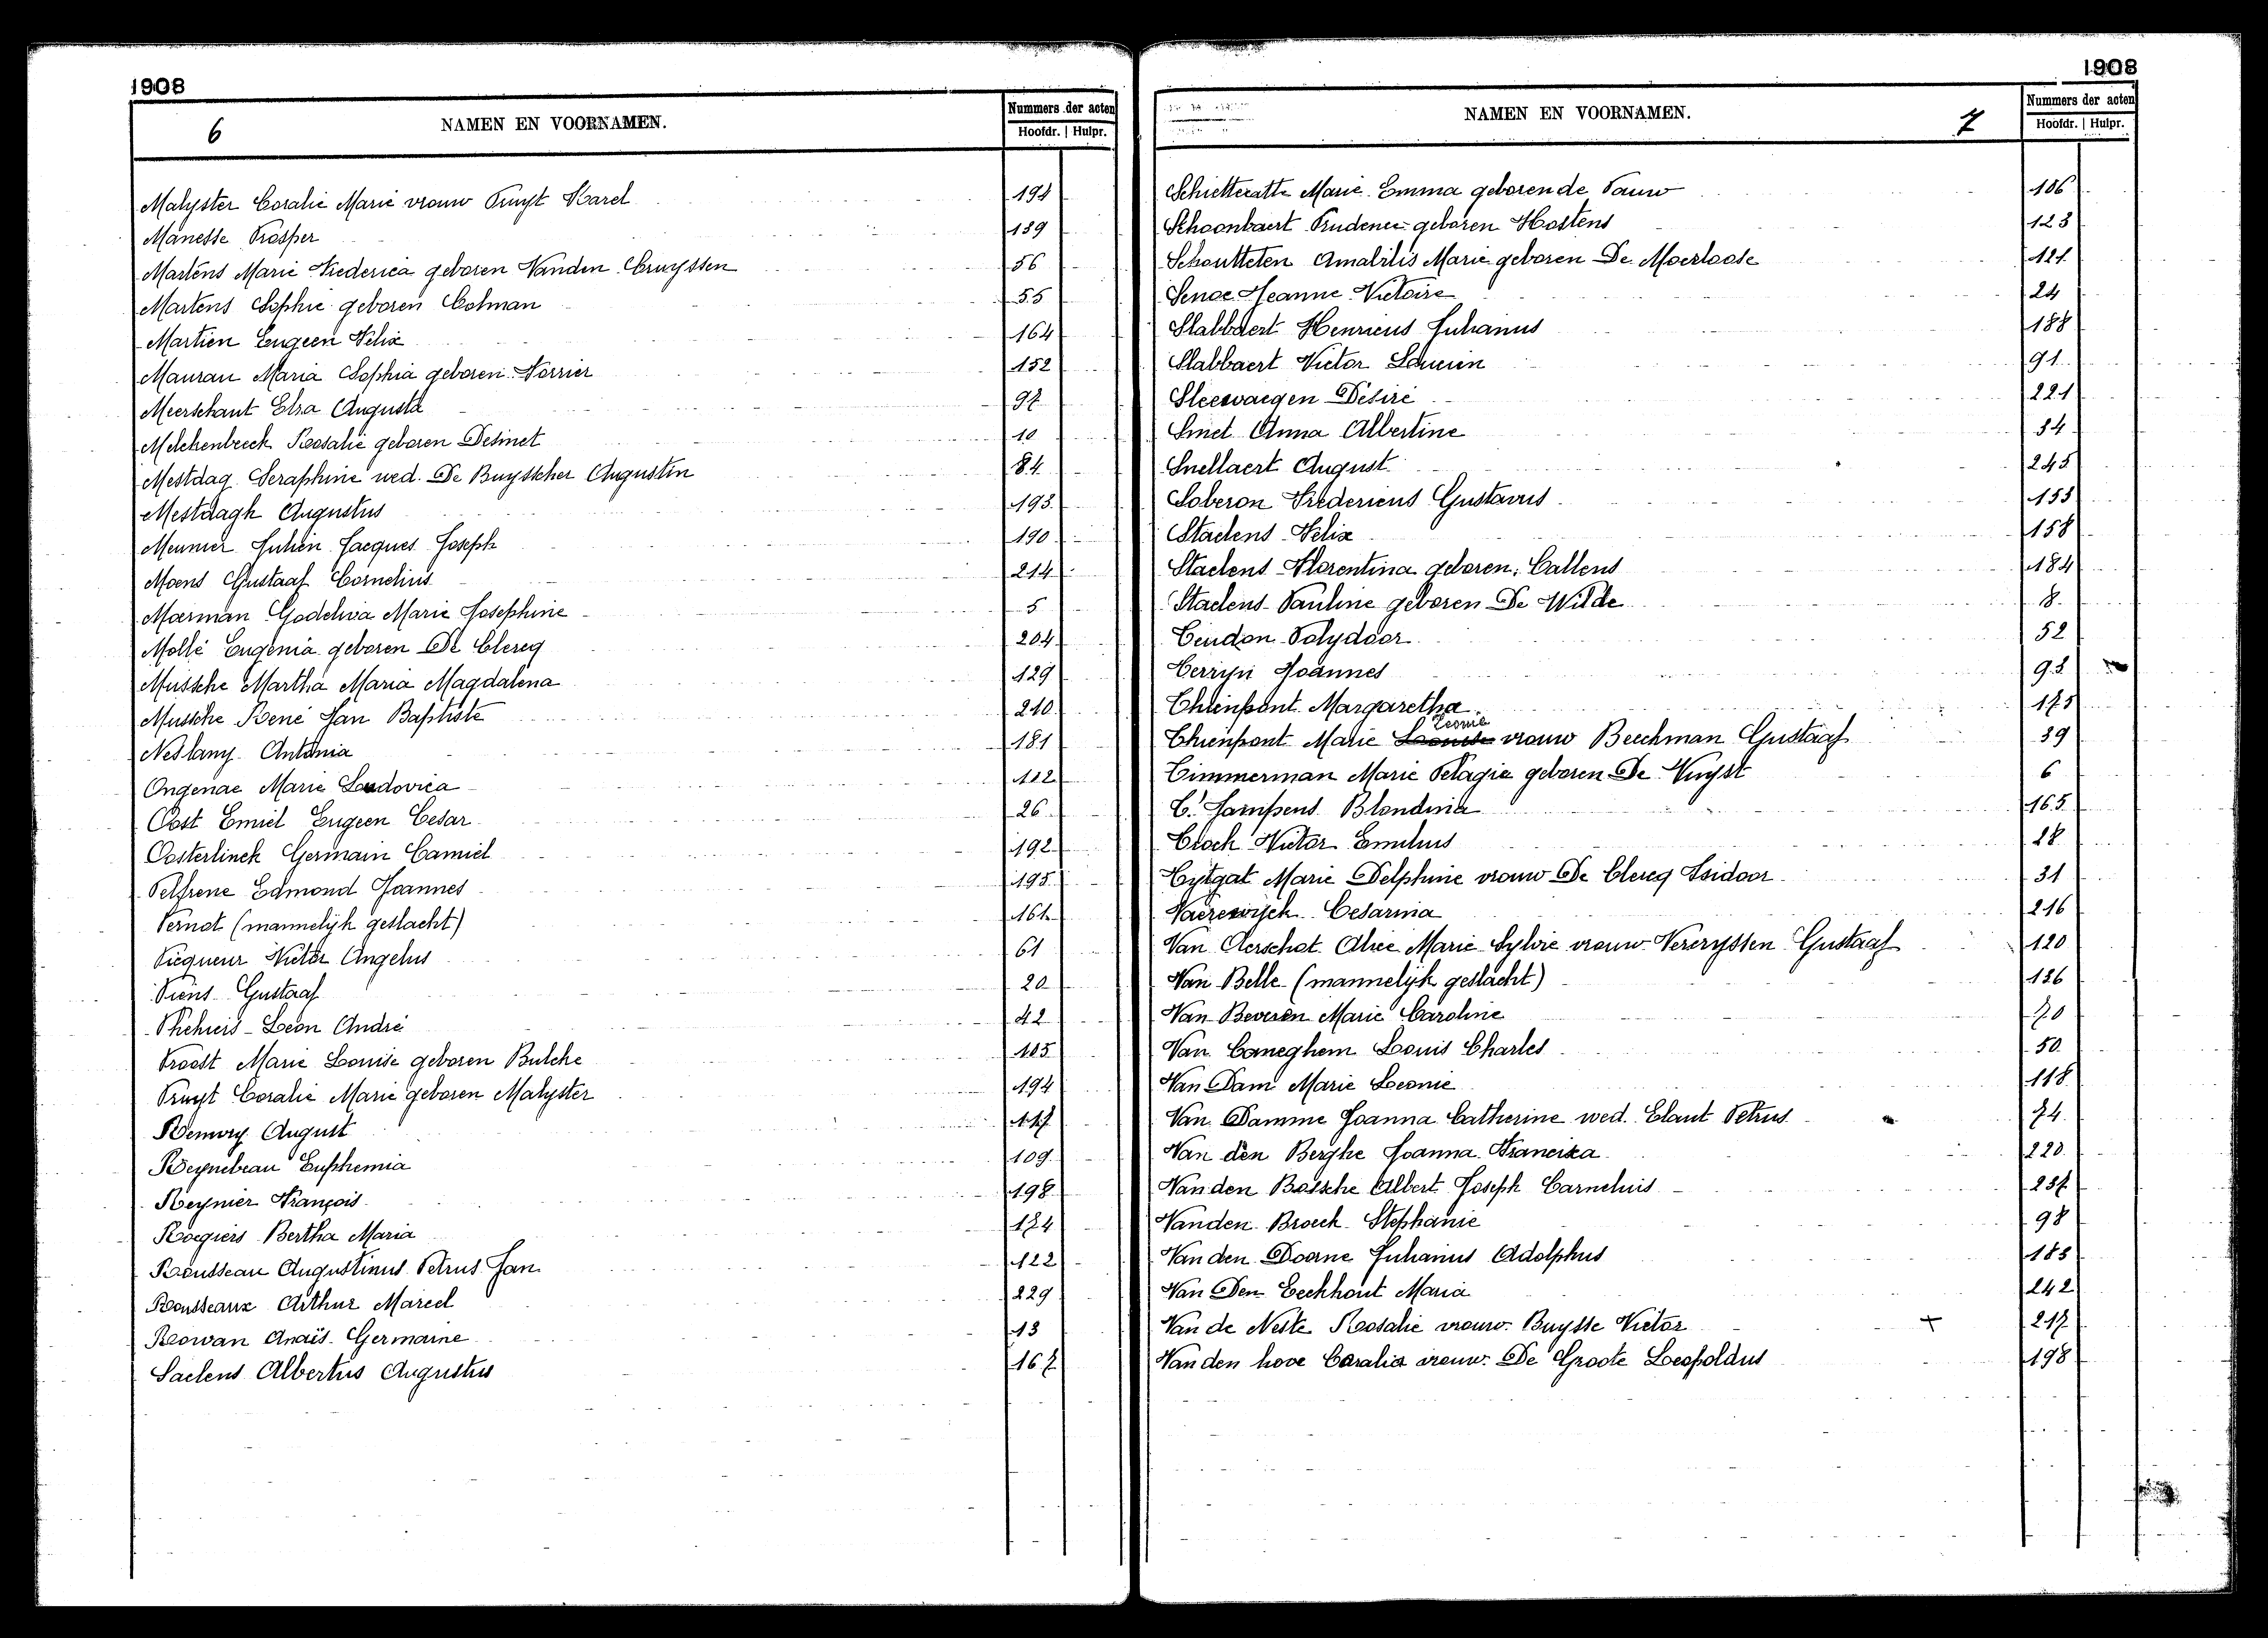 1908
6
NAMEN EN VOORNAMEN.
Nummers der acten
Hoofdr. | Hulpr.
Malyster Coralie Marie vrouw Pruyt Karel 194
Manesse Prosper 139
Martens Marie Frederica geboren Vanden Cruyssen 56
Martens Sophie geboren Colman 55
Martien Eugeen Felix 164
Maurau Maria Sophia geboren Verrier 152
Meerschant Elza Augusta 97
Melckenbeeck Rosalie geboren Desmet 10
Mestdag Seraphine wed. De Buysscher Augustin 84
Mestdagh Augustus 193
Meunier Julien Jacques Joseph 190
Moens Gustaaf Cornelius 214
Moerman Godelieva Marie Josephine 5
Mollé Eugenia geboren De Clercq 204
Mussche Martha Maria Magdalena 129
Mussche René Jan Baptiste 210
Neslany Antonia 181
Ongenae Marie Ludovica 112
Oost Emiel Eugeen Cesar 26
Oosterlinck Germain Camiel 192
Pelfrene Edmond Joannes 195
Pernot (mannelijk geslacht) 161
Picqueur Victor Angelus 61
Piens Gustaaf 20
Leon André 42
Proost Marie Louise geboren Bulcke 105
Pruyt Coralie Marie geboren Malyster 194
Remory August 117
Reynebeau Euphemia 109
Reynier François 198
Rogiers Bertha Maria 174
Rousseau Augustinus Petrus Jan 122
Rousseaux Arthur Marcel 229
Rowan Anaïs Germaine 13
Saelens Albertus Augustus 167
1908
NAMEN EN VOORNAMEN.
7
Nummers der acten
Hoofdr. | Hulpr.
Schietecatte Marie Emma geboren de Pauw 106
Schoonbaert Prudence geboren Hostens 123
Schoutteten Amabilis Marie geboren De Moerloose 121
Senoe Jeanne Victoire 24
Slabbaert Henricus Julianus 188
Slabbaert Victor Lucien 91
Sleeswaegen Désiré 221
Smet Anna Albertine 34
Snellaert August 245
Soberon Fredericus Gustavus 153
Staelens Felix 158
Staelens Florentina geboren Callens 184
Staelens Pauline geboren De Wilde 8
Teudon Polydoor 52
Terryn Joannes 93
Thienpont Margaretha 175
Thienpont Marie Leonie vrouw Beeckman Gustaaf 39
Timmerman Marie Pelagie geboren De Vuyst 6
T'Jampens Blondina 165
Tioch Victor Emilius 28
Tytgat Marie Delphine vrouw De Clercq Isidoor 31
Vaerewijck Cesarina 216
Van Aerschot Alice Marie Sylvie vrouw Vercryssen Gustaaf 120
Van Belle (mannelijk geslacht) 136
Van Beveren Marie Caroline 70
Van Caneghem Louis Charles 50
Van Dam Marie Leonie 118
Van Damme Joanna Catherine wed. Elaut Petrus 74
Van den Berghe Joanna Franciska 220
Van den Bossche Albert Joseph Cornelius 237
Vanden Broeck Stephanie 98
Van den Doorne Julianus Adolphus 183
Van Den Eeckhout Maria 242
Van de Neste Rosalie vrouw Buysse Victor 217
Van den hove Coralia vrouw De Groote Leopoldus 198